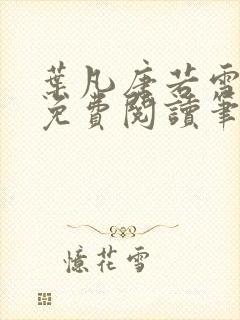 葉凡唐若雪
免費閱讀筆
憶花雪